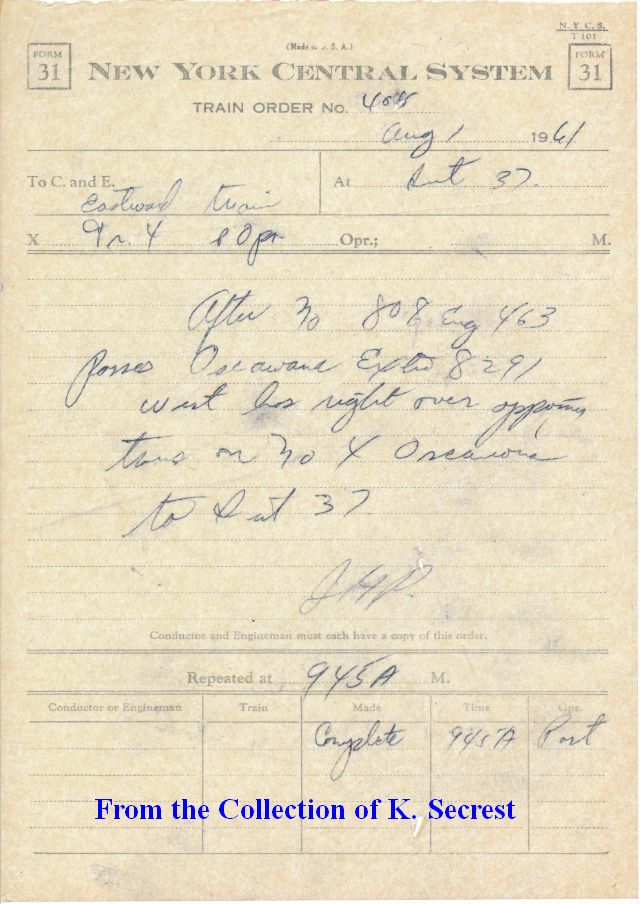 N. Y. C. S.
T 101
(Made in U. S. A.)
FORM 31
NEW YORK CENTRAL SYSTEM
FORM 31
TRAIN ORDER No.
Aug 1 1961
To C. and E. Eastward train
At 37.
X 4 Opr.; M.
After No 808 Eng 463
passes Oscawana Extra 8291
west has right over opposing
trans on No 4 Oscawana
to 37
Conductor and Engineman must each have a copy of this order.
Repeated at 945A M.
Conductor or Engineman Train Made Time Opr.
Complete 945A Post
From the Collection of K. Secrest